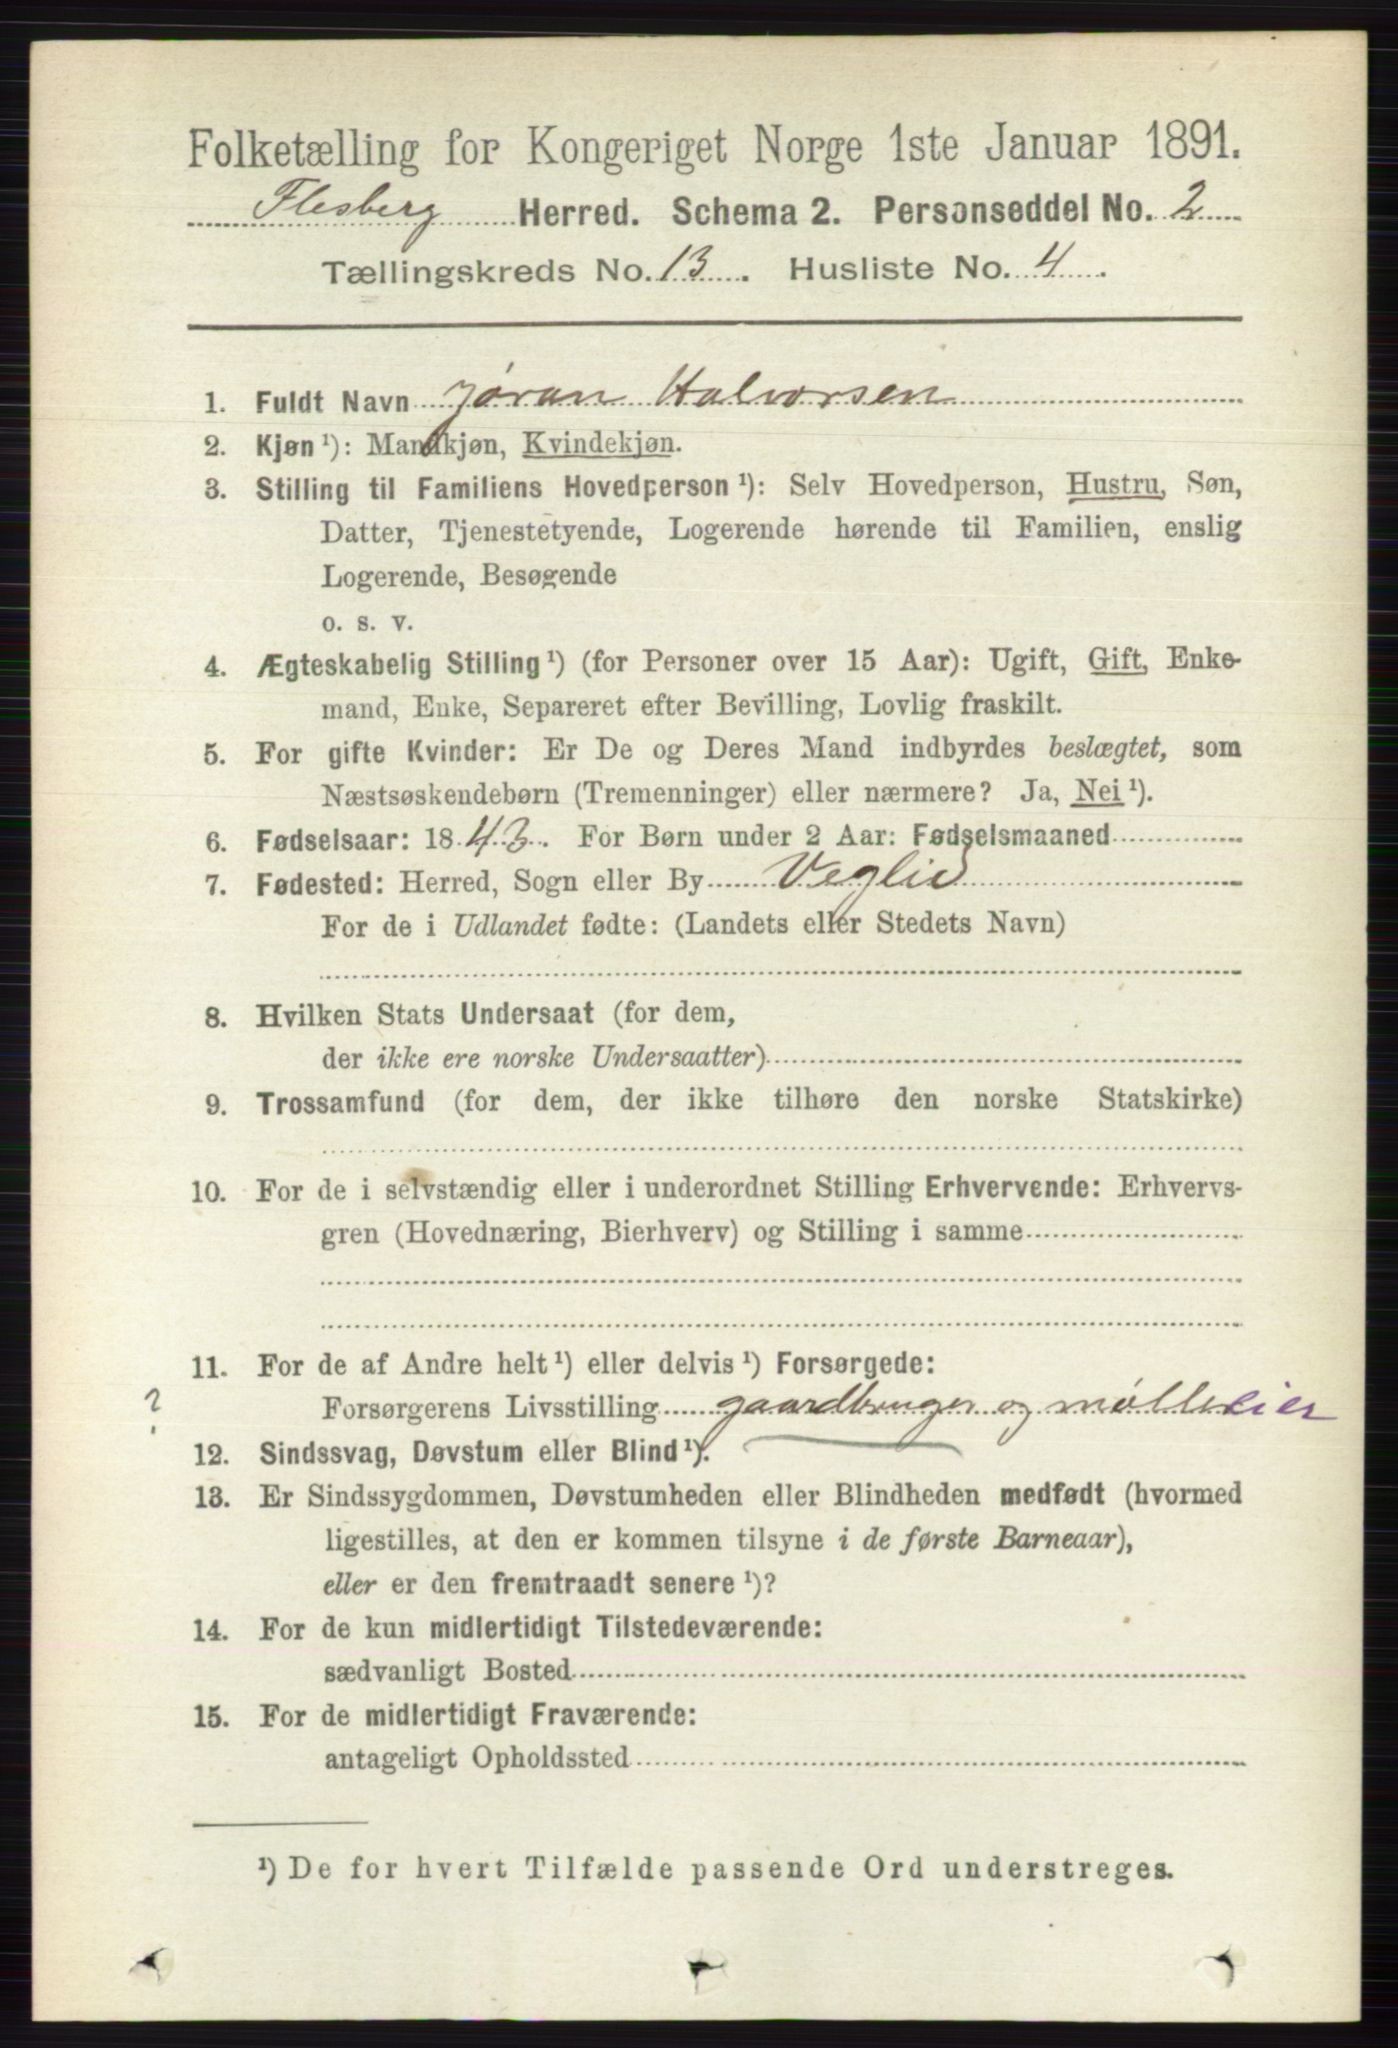 Folketælling for Kongeriget Norge 1ste Januar 1891.
Flesberg Herred. Schema 2. Personseddel No. 2
Tællingskreds No. 13. Husliste No. 4.
1. Fuldt Navn Jøran Halvorsen
2. Kjøn ¹): Mandkjøn, Kvindekjøn.
3. Stilling til Familiens Hovedperson ¹): Selv Hovedperson, Hustru, Søn,
Datter, Tjenestetyende, Logerende hørende til Familien, enslig
Logerende, Besøgende
o. s. v.
4. Ægteskabelig Stilling ¹) (for Personer over 15 Aar): Ugift, Gift, Enke-
mand, Enke, Separeret efter Bevilling, Lovlig fraskilt.
5. For gifte Kvinder: Er De og Deres Mand indbyrdes beslægtet, som
Næstsøskendebørn (Tremenninger) eller nærmere? Ja, Nei ¹).
6. Fødselsaar: 1843. For Børn under 2 Aar: Fødselsmaaned
7. Fødested: Herred, Sogn eller By Veglid
For de i Udlandet fødte: (Landets eller Stedets Navn)
8. Hvilken Stats Undersaat (for dem,
der ikke ere norske Undersaatter)
9. Trossamfund (for dem, der ikke tilhøre den norske Statskirke)
10. For de i selvstændig eller i underordnet Stilling Erhvervende: Erhvervs-
gren (Hovednæring, Bierhverv) og Stilling i samme
11. For de af Andre helt ¹) eller delvis ¹) Forsørgede:
? Forsørgerens Livsstilling gaardbruger og mølleeier
12. Sindssvag, Døvstum eller Blind ¹).
13. Er Sindssygdommen, Døvstumheden eller Blindheden medfødt (hvormed
ligestilles, at den er kommen tilsyne i de første Barneaar),
eller er den fremtraadt senere ¹)?
14. For de kun midlertidigt Tilstedeværende:
sædvanligt Bosted
15. For de midlertidigt Fraværende:
antageligt Opholdssted
¹) De for hvert Tilfælde passende Ord understreges.